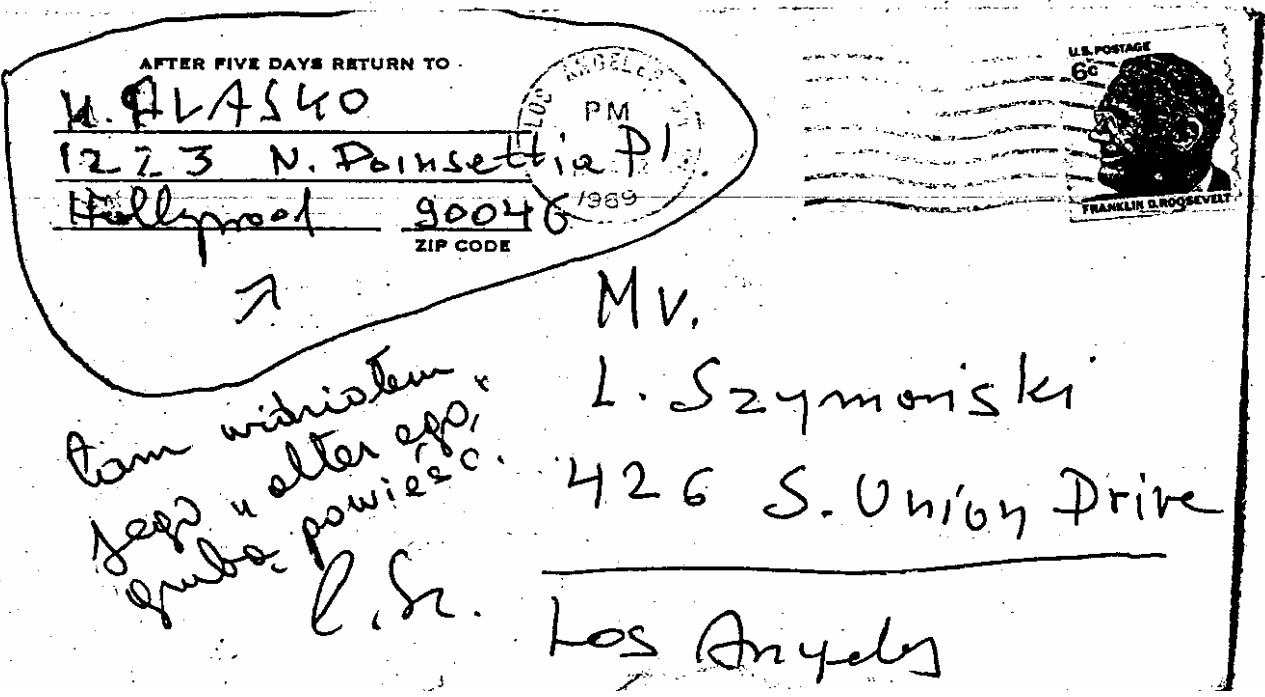 AFTER FIVE DAYS RETURN TO
M. HLASKO
1223 N. Poinsettia Pl.
Hollywood 90046
ZIP CODE
LOS ANGELES
PM
1969
U.S. POSTAGE
6c
FRANKLIN D. ROOSEVELT
Mr.
L. Szymański
426 S. Union Drive
Los Angeles
tam widziałem
jego "alter ego,"
grubą powieść.
L. Sz.